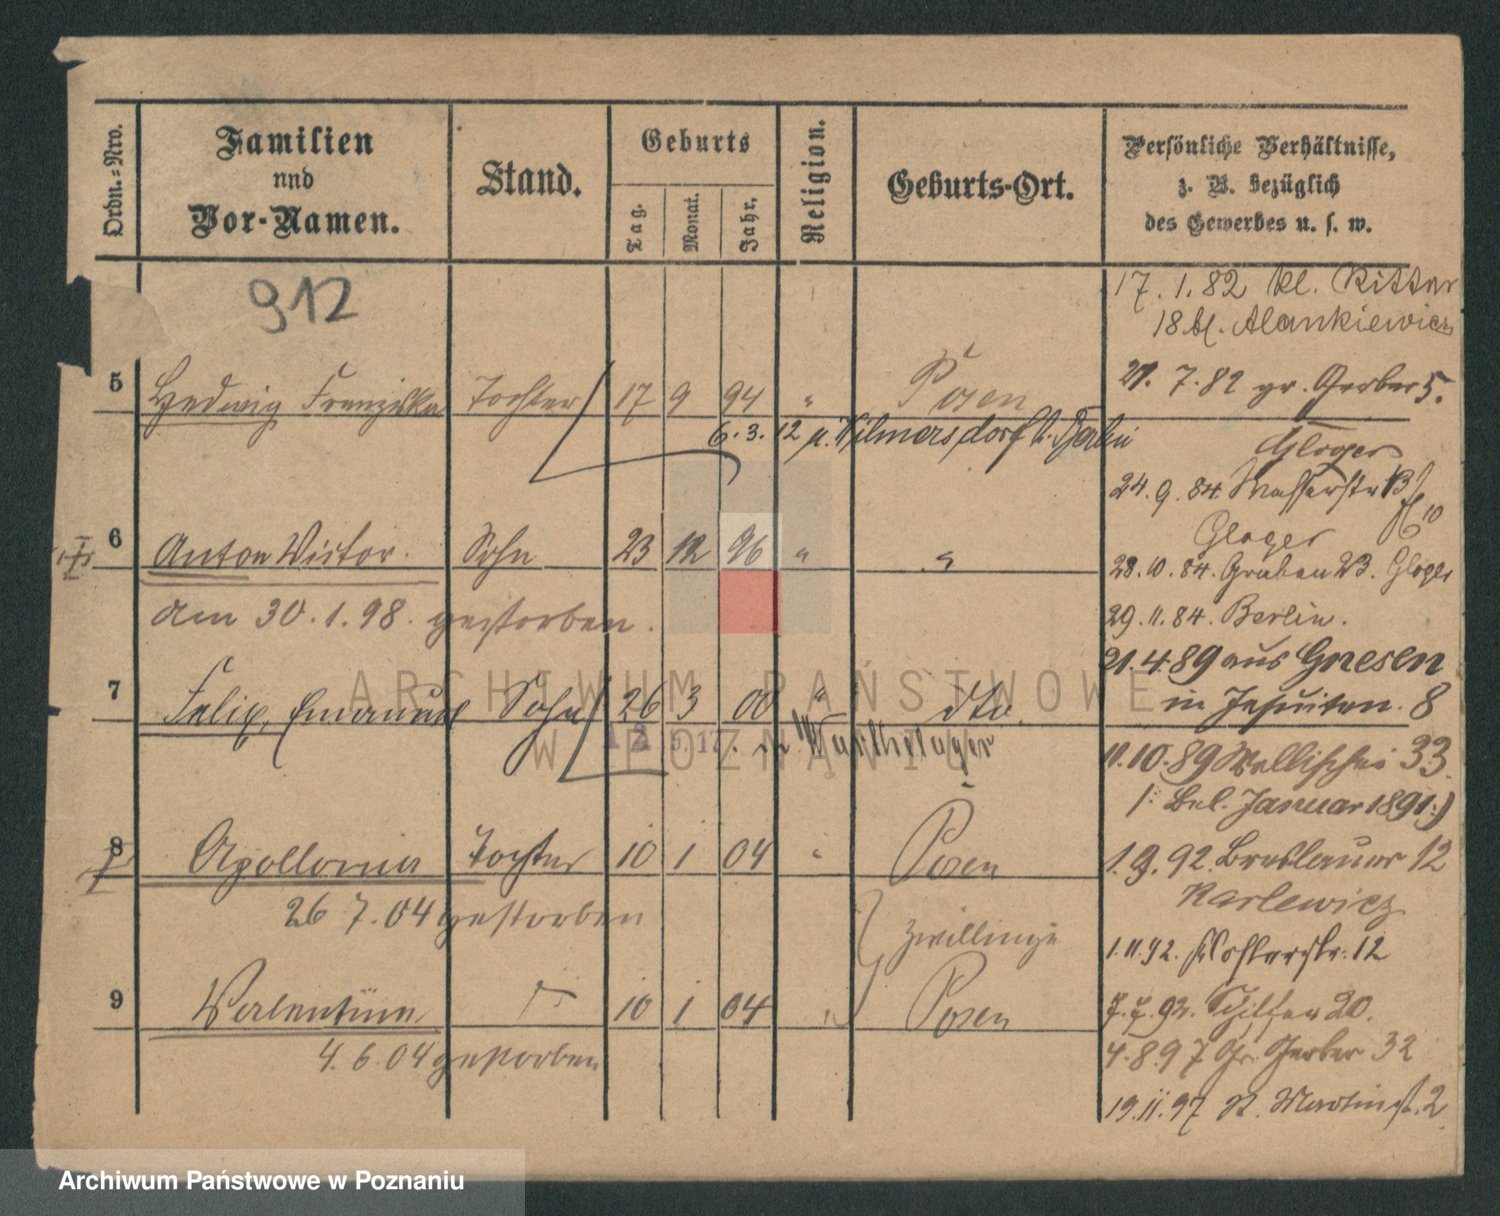 Ordn.=Nro. Familien und Vor-Namen. Stand. Geburts Tag. Monat. Jahr. Religion. Geburts-Ort. Persönliche Verhältnisse, z. B. bezüglich des Gewerbes u. s. w.
912
17.1.82 kl. Ritter
18 bl. Alankiewicz
5 Hedwig Franziska Tochter 17 9 94 " Posen
21.7.82 gr. Gerber 5.
6.3.12 n. Wilmersdorf b. Berlin
Gloger
24.9.84. Wasserstr
Gloger
6 Anton Victor. Sohn 23 12 96 " "
28.10.84. Graben 23. Gloger
am 30.1.98. gestorben.
29.11.84. Berlin.
21.4.89 aus Gnesen
7 Felix, Emanuel Sohn 26 3 00 " dto.
in Jesuiten. 8
in Warthelager
11.10.89 Wallischei 33
Januar 1891
8 Apollonia Tochter 10 1 04 " Posen
1.9.92. Breslauer 12
Karlewicz
26 7.04 gestorben
Zwillinge
1.11.92. Klosterstr. 12
9 Valentine 10 1 04 " Posen
20.
4.6.04 gestorben
4.8.97 Gr. Gerber 32
19.11.97 St. Martinst. 2
ARCHIWUM PAŃSTWOWE
W POZNANIU
Archiwum Państwowe w Poznaniu